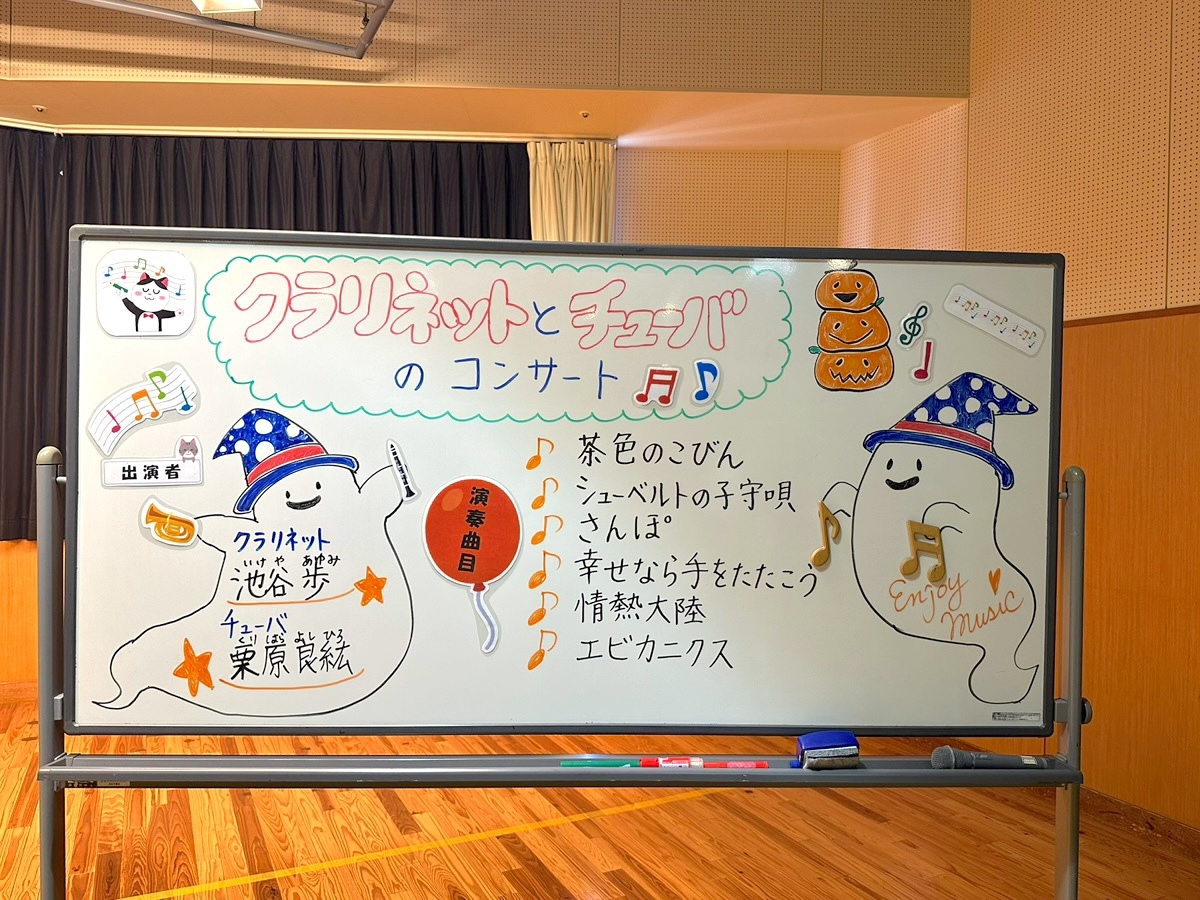 クラリネットとチューバ
のコンサート
出演者
クラリネット
いけや あゆみ
池谷 歩
チューバ
くりはら よしひろ
栗原良紘
演奏曲目
茶色のこびん
シューベルトの子守唄
さんぽ
幸せなら手をたたこう
情熱大陸
エビカニクス
Enjoy
Music